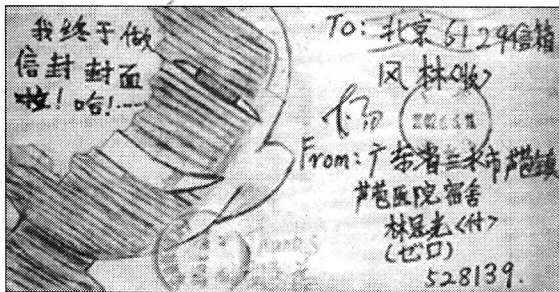 我终于做
信封封面
啦！哈！……
To: 北京6129信箱
风林<收>
杨
From: 广东省三水市芦苞镇
芦苞医院宿舍
<付>
528139.